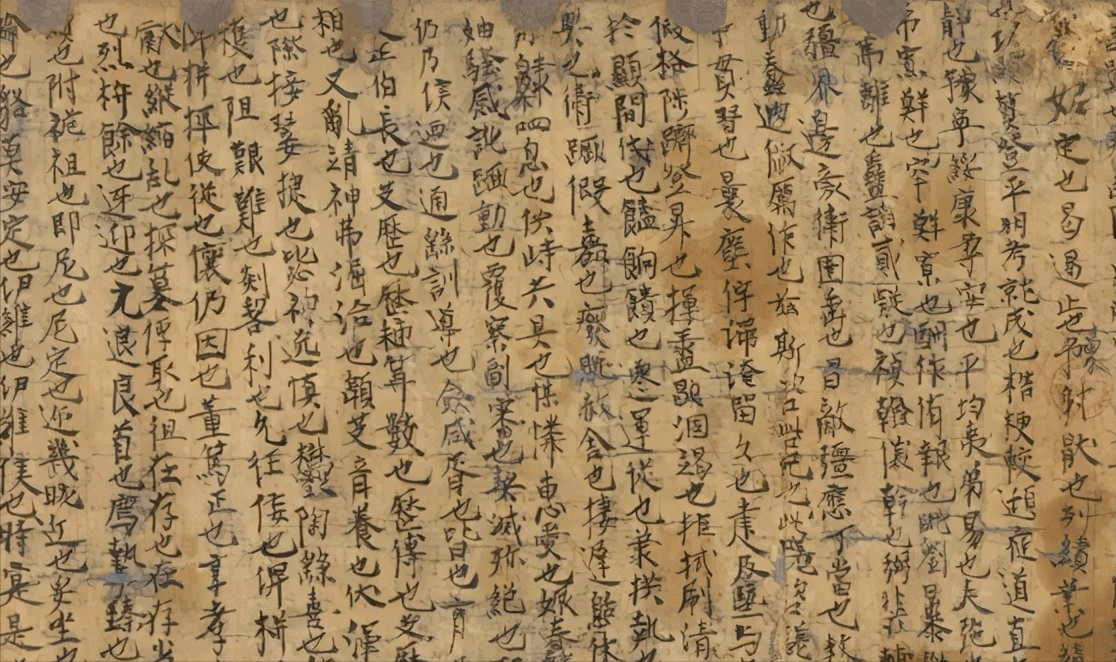 定也曷遏止也豫射厭也烈績業也績
登平明考就成也梏梗較頲庭道直
靜也豫寧綏康柔安也平均夷弟易也矢弛
希寡鮮也罕鮮寡也酬作侑報也毗劉暴
離也蠱諂貳疑也楨翰儀幹也弼棐輔
也疆界邊衛圉垂也昌敵彊應丁當也
動蠢迪俶厲作也茲斯咨呰已也此嗟咨
貫習也曩塵佇淹留久也逮及曁与
假格陟躋登昇也揮盝歇涸竭也拒拭刷清
於顯間代也饁餉饋也遷運徙也秉拱執
衛蹶假嘉也廢稅赦舍也棲遲憩休
呬息也供峙共具也煤憐惠愛也娠蠢
妯騷感訛蹶動也覆察副審也契滅殄絕也
仍乃侯迺也迪繇訓導也僉咸胥也
正伯長也艾歷也歷秭算數也歷傅也艾歷
相也乂亂靖神弗淈治也頤艾育養也汱渾
也際接翜捷也毖神溢慎也鬱陶繇喜也
獲也阻艱難也剡䂮利也允任佞也俾拼
拼抨使從也儴仍因也董篤正也享孝
獻也縱縮亂也探篡俘取也徂在存也在存
也烈枿餘也迓迎也元退良首也薦摯臻也
也附祪祖也即尼也尼定也邇幾暱近也妥坐也
也貉漠安定也伊維也伊維侯也時寔是